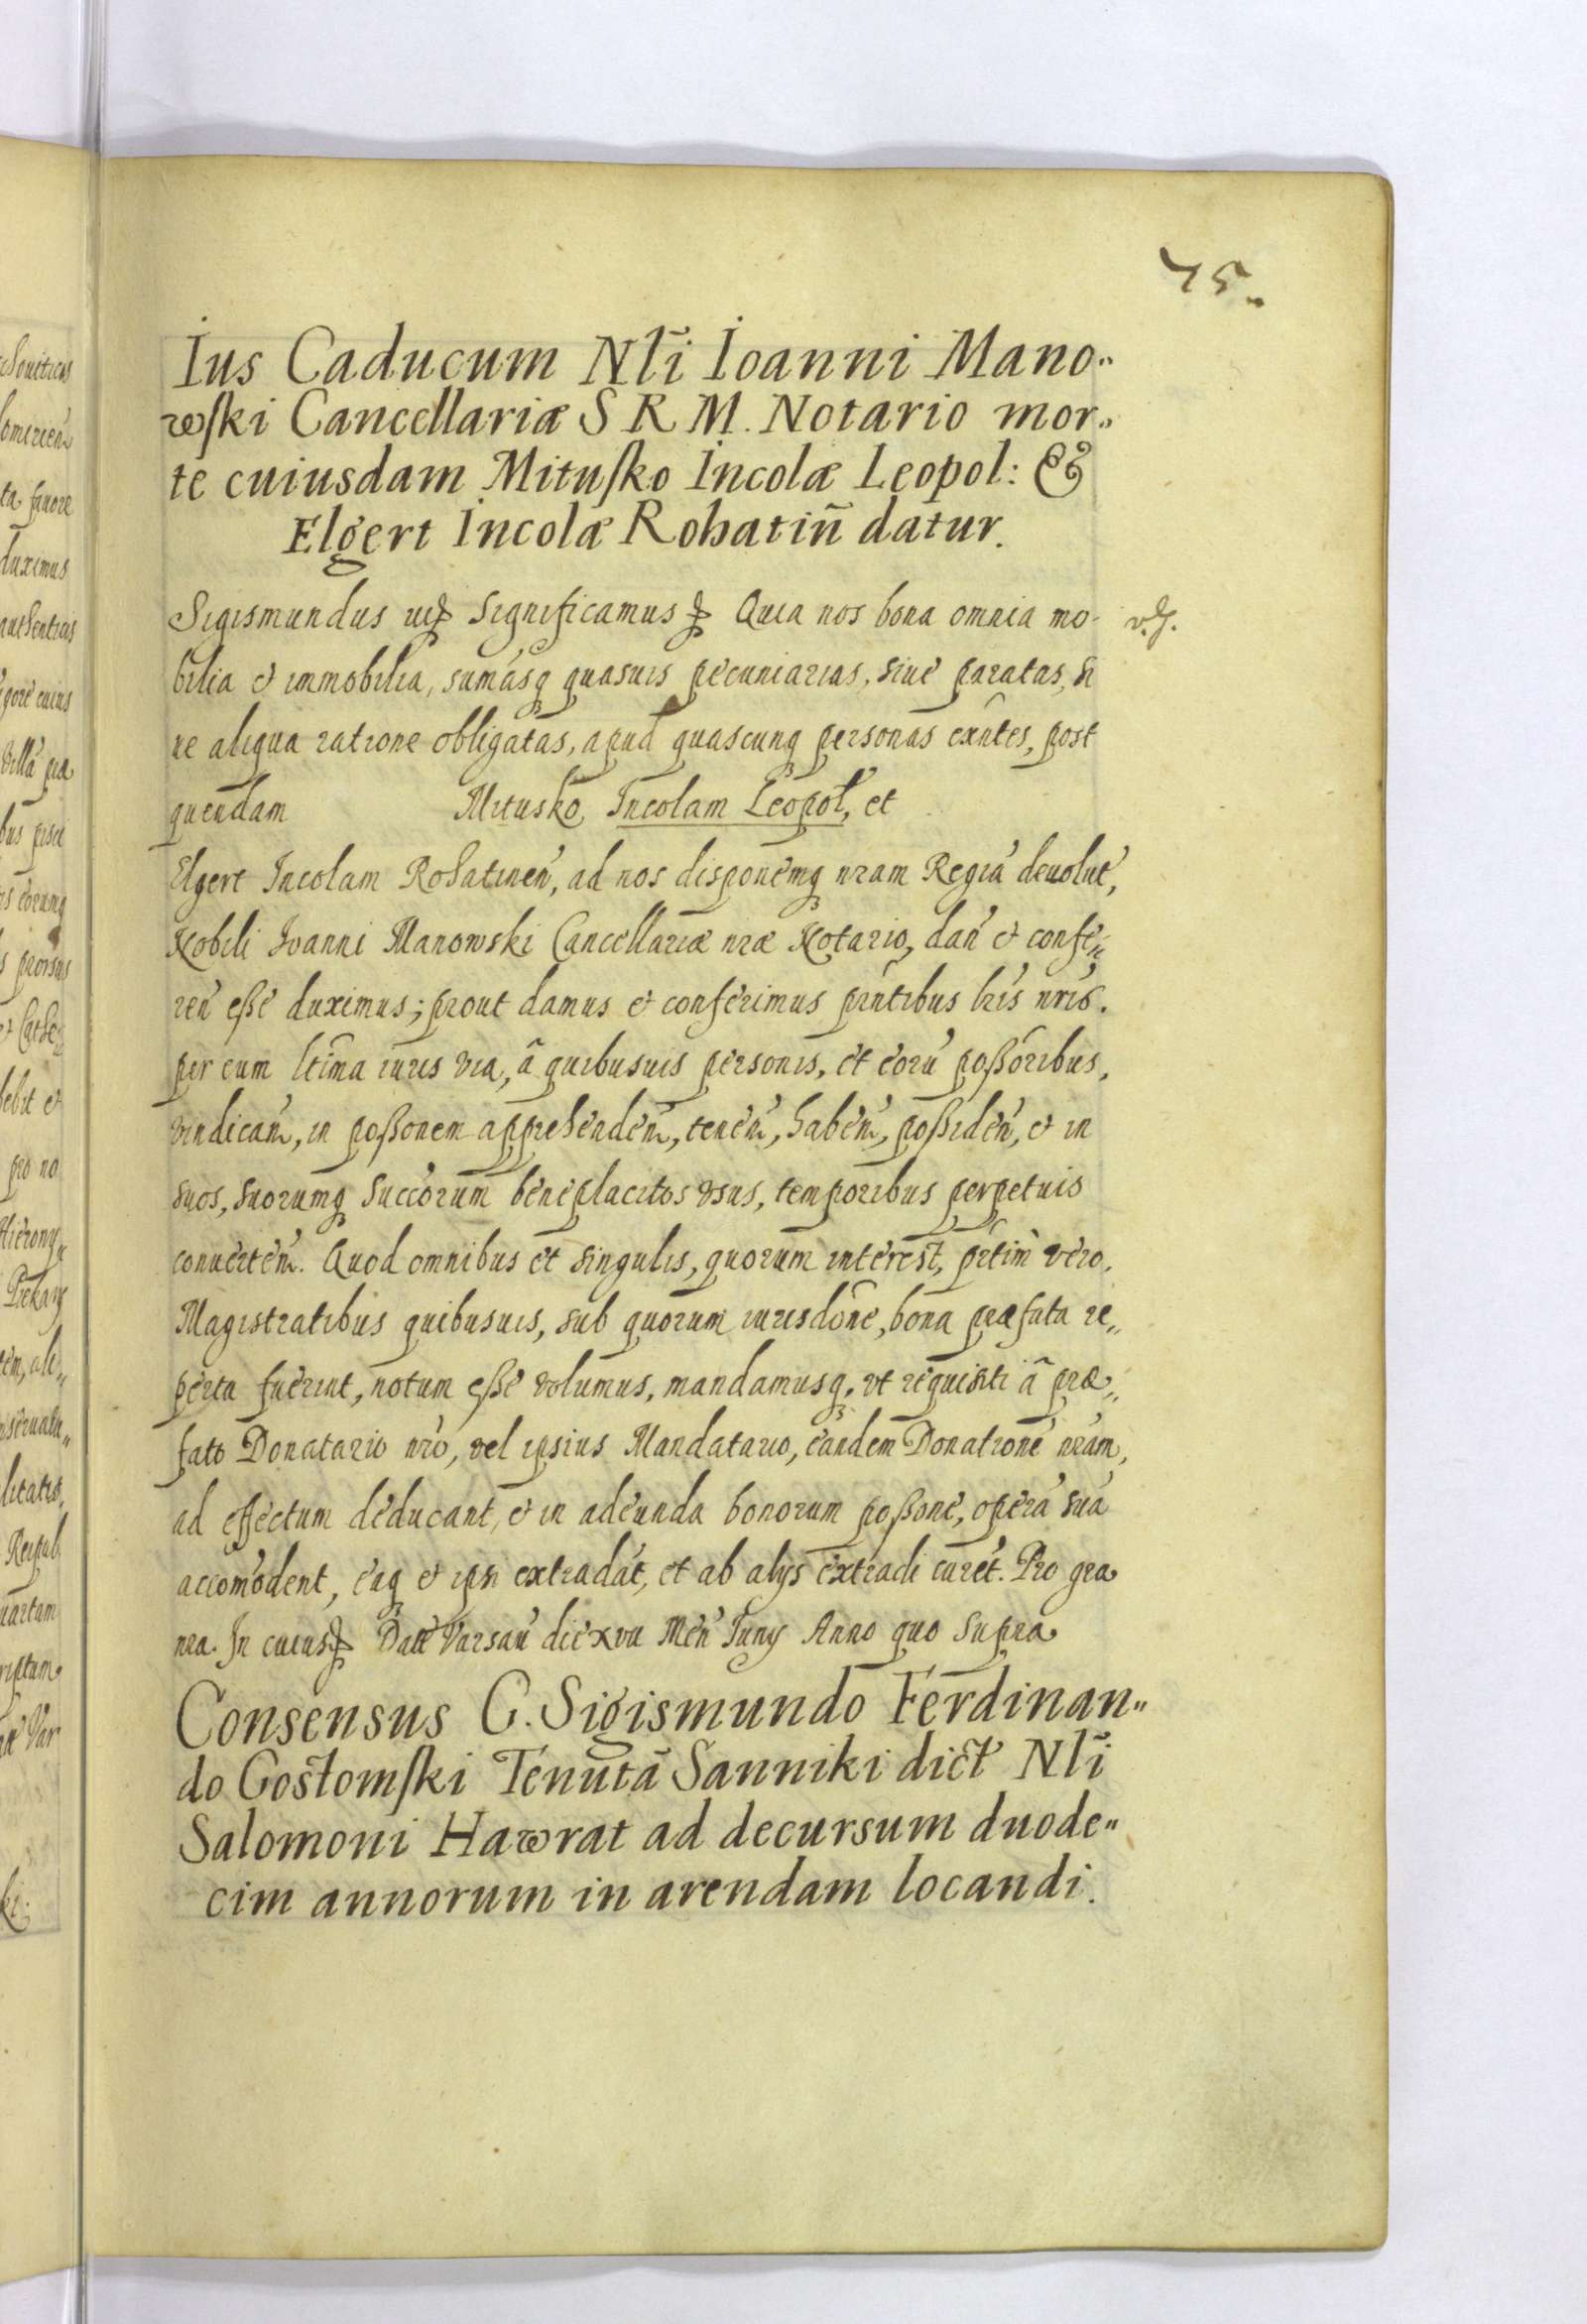 75.
Ius Caducum Nłi Ioanni Mano„
wski Cancellariæ S R M. Notario mor„
te cuiusdam Mitusko Incolæ Leopol: &
Elgert Incolæ Rohatiñ datur.
Sigismundus Significamus Quia nos bona omnia mo-
bilia et immobilia, sumasq quasuis pecuniarias, siue paratas, si
ue aliqua ratione obligatas, apud quascunq personas exñtes, post
quendam Mitusko, Incolam Leopol, et
Elgert Incolam Rohatinen, ad nos disponemq nram Regia deuolut,
Nobili Ioanni Manowski Cancellariæ nræ Notario, dan et confe„
ren esse duximus; prout damus et conferimus pñtibus lris nris.
per eum ltima iuris via, â quibusuis personis, et eoru possoribus,
vindicam, in possonem apprehendem, tenem, habem, possiden, et in
suos, suorumq succorum beneplacitos vsus, temporibus perpetuis
conuertem. Quod omnibus et singulis, quorum interest, prtim vero,
Magistratibus quibusuis, sub quorum iurisdone, bona præfata re„
perta fuerint, notum esse volumus, mandamusq, vt requisiti â præ„
fato Donatario nro, vel ipsius Mandatario, eandem Donatione nram,
ad effectum deducant, et in adeunda bonorum possone, opera sua
accomodent, eaq et ipsi extradat, et ab alijs extradi curet. Pro gra
nra. In cuius Datt Varsau die xvii Men Iunij Anno quo supra
Consensus G. Sigismundo Ferdinan„
do Gostomski Tenuta Sanniki dict Nłi
Salomoni Hawrat ad decursum duode„
cim annorum in arendam locandi.